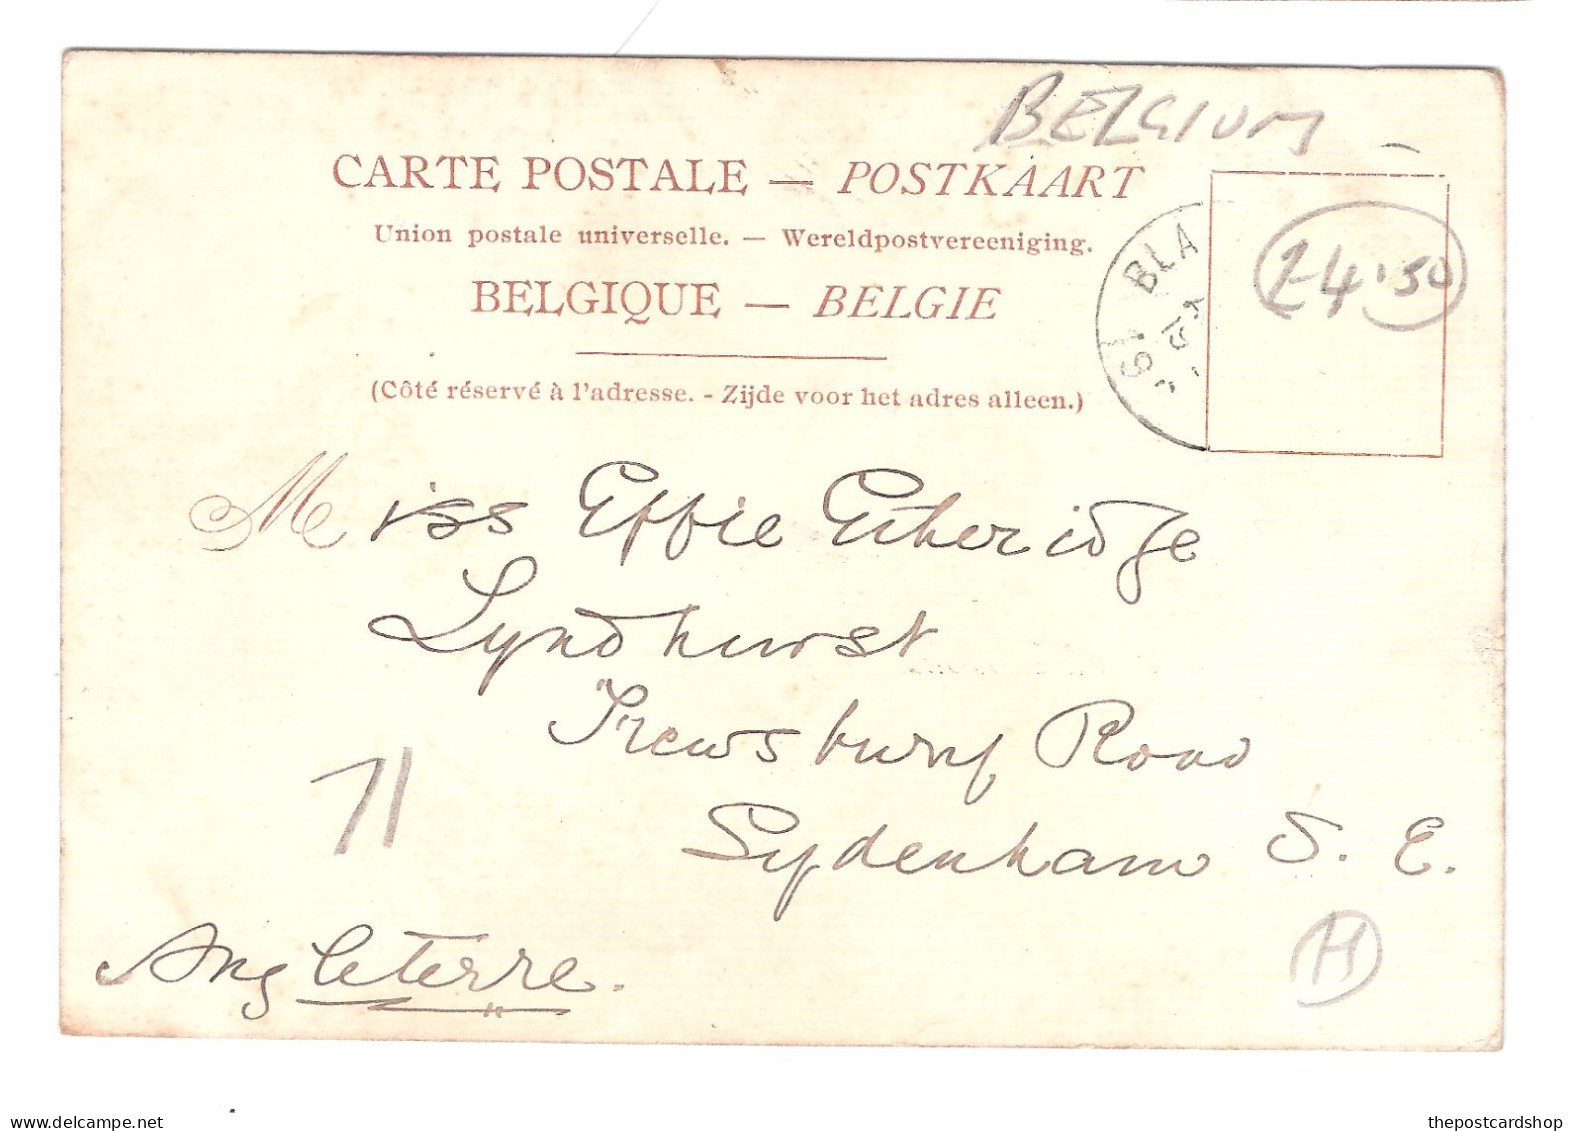 BELGIUM -
CARTE POSTALE — POSTKAART
Union postale universelle. — Wereldpostvereeniging.
BELGIQUE — BELGIE
(Côté réservé à l'adresse. - Zijde voor het adres alleen.)
BLA
24.50
Miss Effie Etheridge
Lyndhurst
Trewsbury Road
Sydenham S. E.
11
H
Angleterre.
www.delcampe.net
thepostcardshop